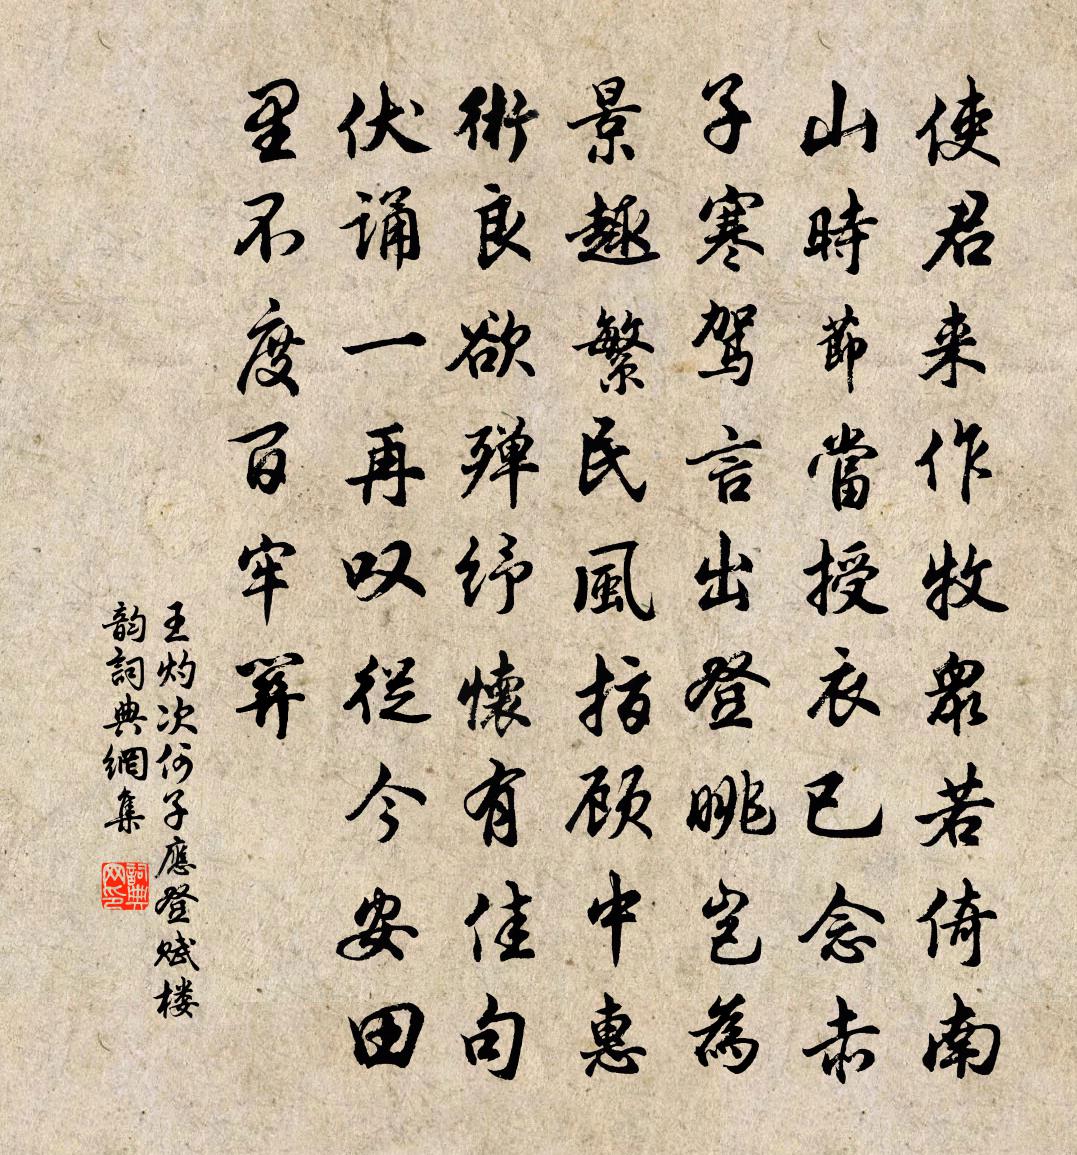 使君来作牧衆若倚南
山時節當授衣已念赤
子寒駕言出登眺岂為
景趣繁民風指顾中惠
術良欲殫纾懷有佳句
伏誦一再叹從今安田
里不度百牢関
王灼次何子應登赋楼
韵詞典網集
詞典网印